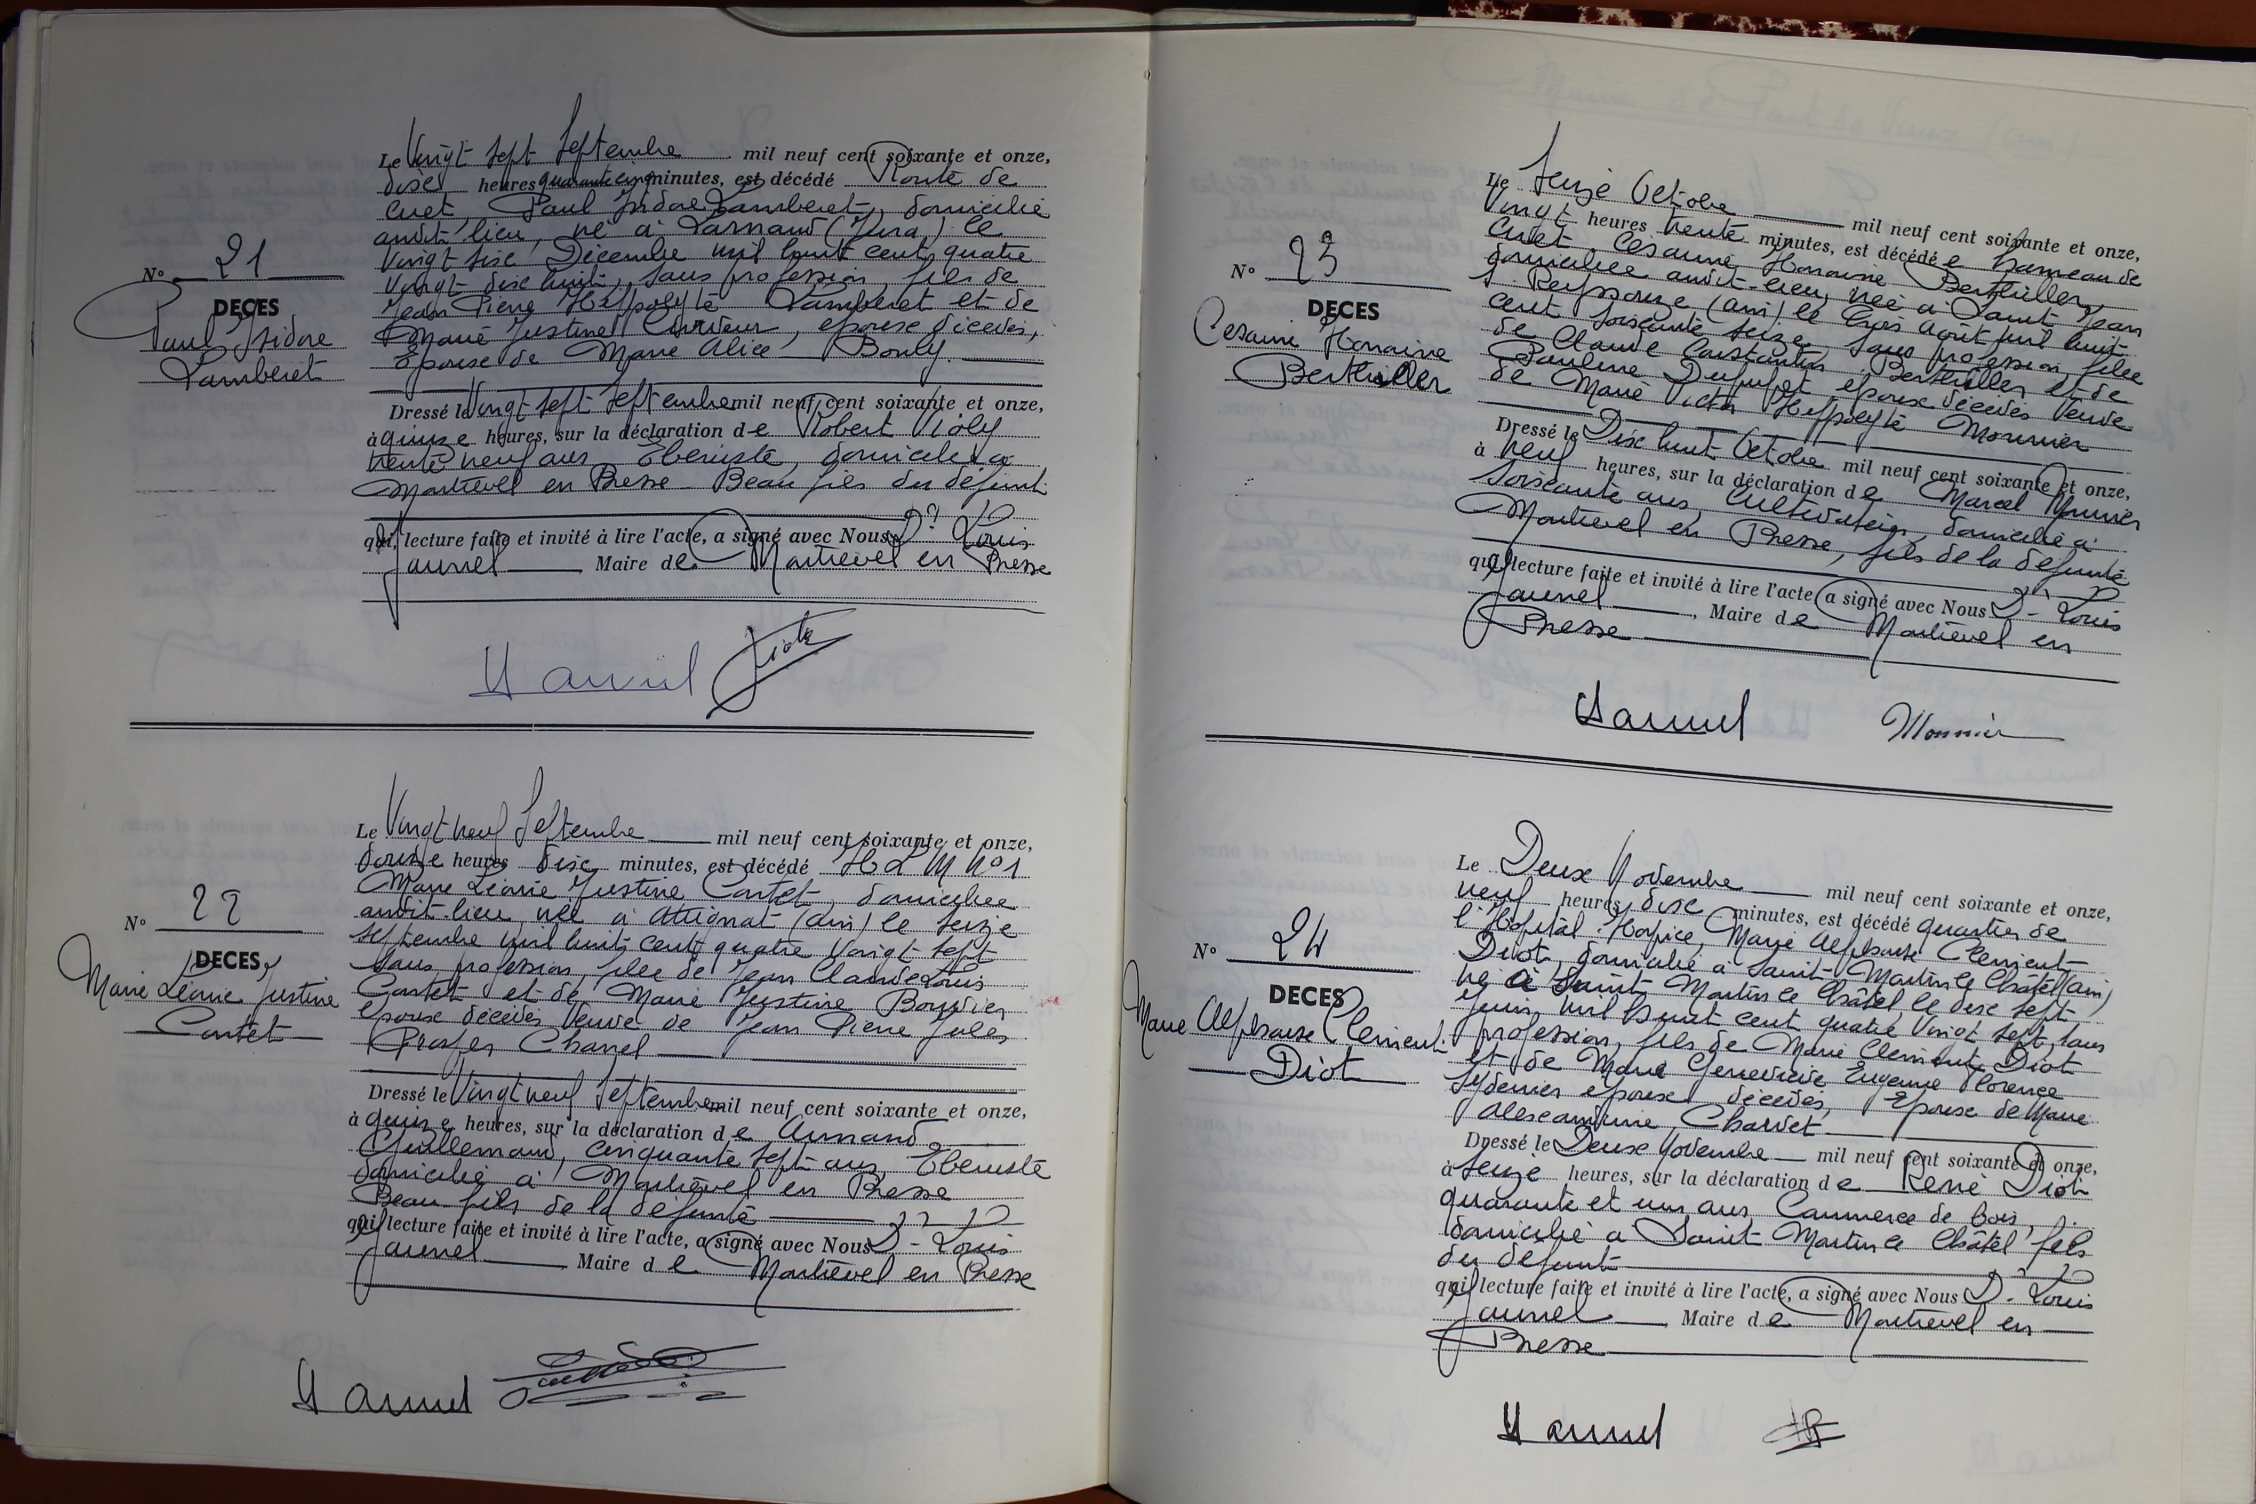 N° 21
DECES
Paul Isidore
Lamberet
Le Vingt sept Septembre mil neuf cent soixante et onze,
dixe heures quarante cinq minutes, est décédé Route de
Cuet, Paul Isidore Lamberet, domicilié
audit lieu, né à Larnaud (Jura) le
Vingt six Décembre mil huit cent quatre
Vingt dix huit, sans profession, fils de
Jean Pierre Hippolyte Lamberet et de
Marie Justine, époux décédés,
Epoux de Marie Alice Bouly.
Dressé le Vingt sept Septembre mil neuf cent soixante et onze,
à quinze heures, sur la déclaration de Robert Violy
trente neuf ans, Ebéniste, domicilié à
Montrevel en Bresse Beau fils du défunt
qui, lecture faite et invité à lire l'acte, a signé avec Nous Dr Louis
Jaunel Maire de Montrevel en Bresse
N° 22
DECES
Marie Léonie Justine
Contet
Le Vingt neuf Septembre mil neuf cent soixante et onze,
douze heures dix minutes, est décédé H L M N° 1
Marie Léonie Justine Contet, domiciliée
audit-lieu, née à Attignat (Ain) le seize
septembre mil huit cent quatre Vingt sept
sans profession, fille de Jean Claude Louis
Contet et de Marie Justine Bouvier
époux décédés Veuve de Jean Pierre Jules
Prosper Charnel
Dressé le Vingt neuf Septembre mil neuf cent soixante et onze,
à quinze heures, sur la déclaration de Armand
Guillemaud, cinquante sept ans, Ebéniste
domicilié à Montrevel en Bresse
Beau fils de la défunte
qui, lecture faite et invité à lire l'acte, a signé avec Nous Dr Louis
Jaunel Maire de Montrevel en Bresse
N° 23
DECES
Césarine Honorine
Berthillier
Le Seize Octobre mil neuf cent soixante et onze,
Vingt heures trente minutes, est décédée hameau de
Cuet, Césarine Honorine Berthillier,
domiciliée audit-lieu, née à Saint Jean
s. Reyssouze (Ain) le trois août mil huit
cent soixante seize, sans profession, fille
de Claude Constantin Berthillier et de
Pauline époux décédés Veuve
de Marie Victor Hippolyte Monnier
Dressé le Dix huit Octobre mil neuf cent soixante et onze,
à neuf heures, sur la déclaration de Marcel Monnier
soixante ans, Cultivateur, domicilié à
Montrevel en Bresse, fils de la défunte
qui, lecture faite et invité à lire l'acte, a signé avec Nous Dr Louis
Jaunel, Maire de Montrevel en
Bresse
Monnier
N° 24
DECES
Marie Alphonse Clément
Diot
Le Deux Novembre mil neuf cent soixante et onze,
neuf heures, dix minutes, est décédé quartier de
l'Hôpital-Hospice, Marie Alphonse Clément
Diot, domicilié à Saint-Martin le Châtel (Ain)
né à Saint Martin le Châtel, le dix sept
Juin mil huit cent quatre Vingt sept, sans
profession, fils de Marie Clément Diot
et de Marie Geneviève Eugénie Florence
époux décédés, Epoux de Marie
Alexandrine Charvet
Dressé le Deux Novembre mil neuf cent soixante et onze,
à seize heures, sur la déclaration de René Diot
quarante et un ans Commerce de bois,
domicilié à Saint Martin le Châtel fils
du défunt
qui, lecture faite et invité à lire l'acte, a signé avec Nous Dr Louis
Jaunel, Maire de Montrevel en
Bresse